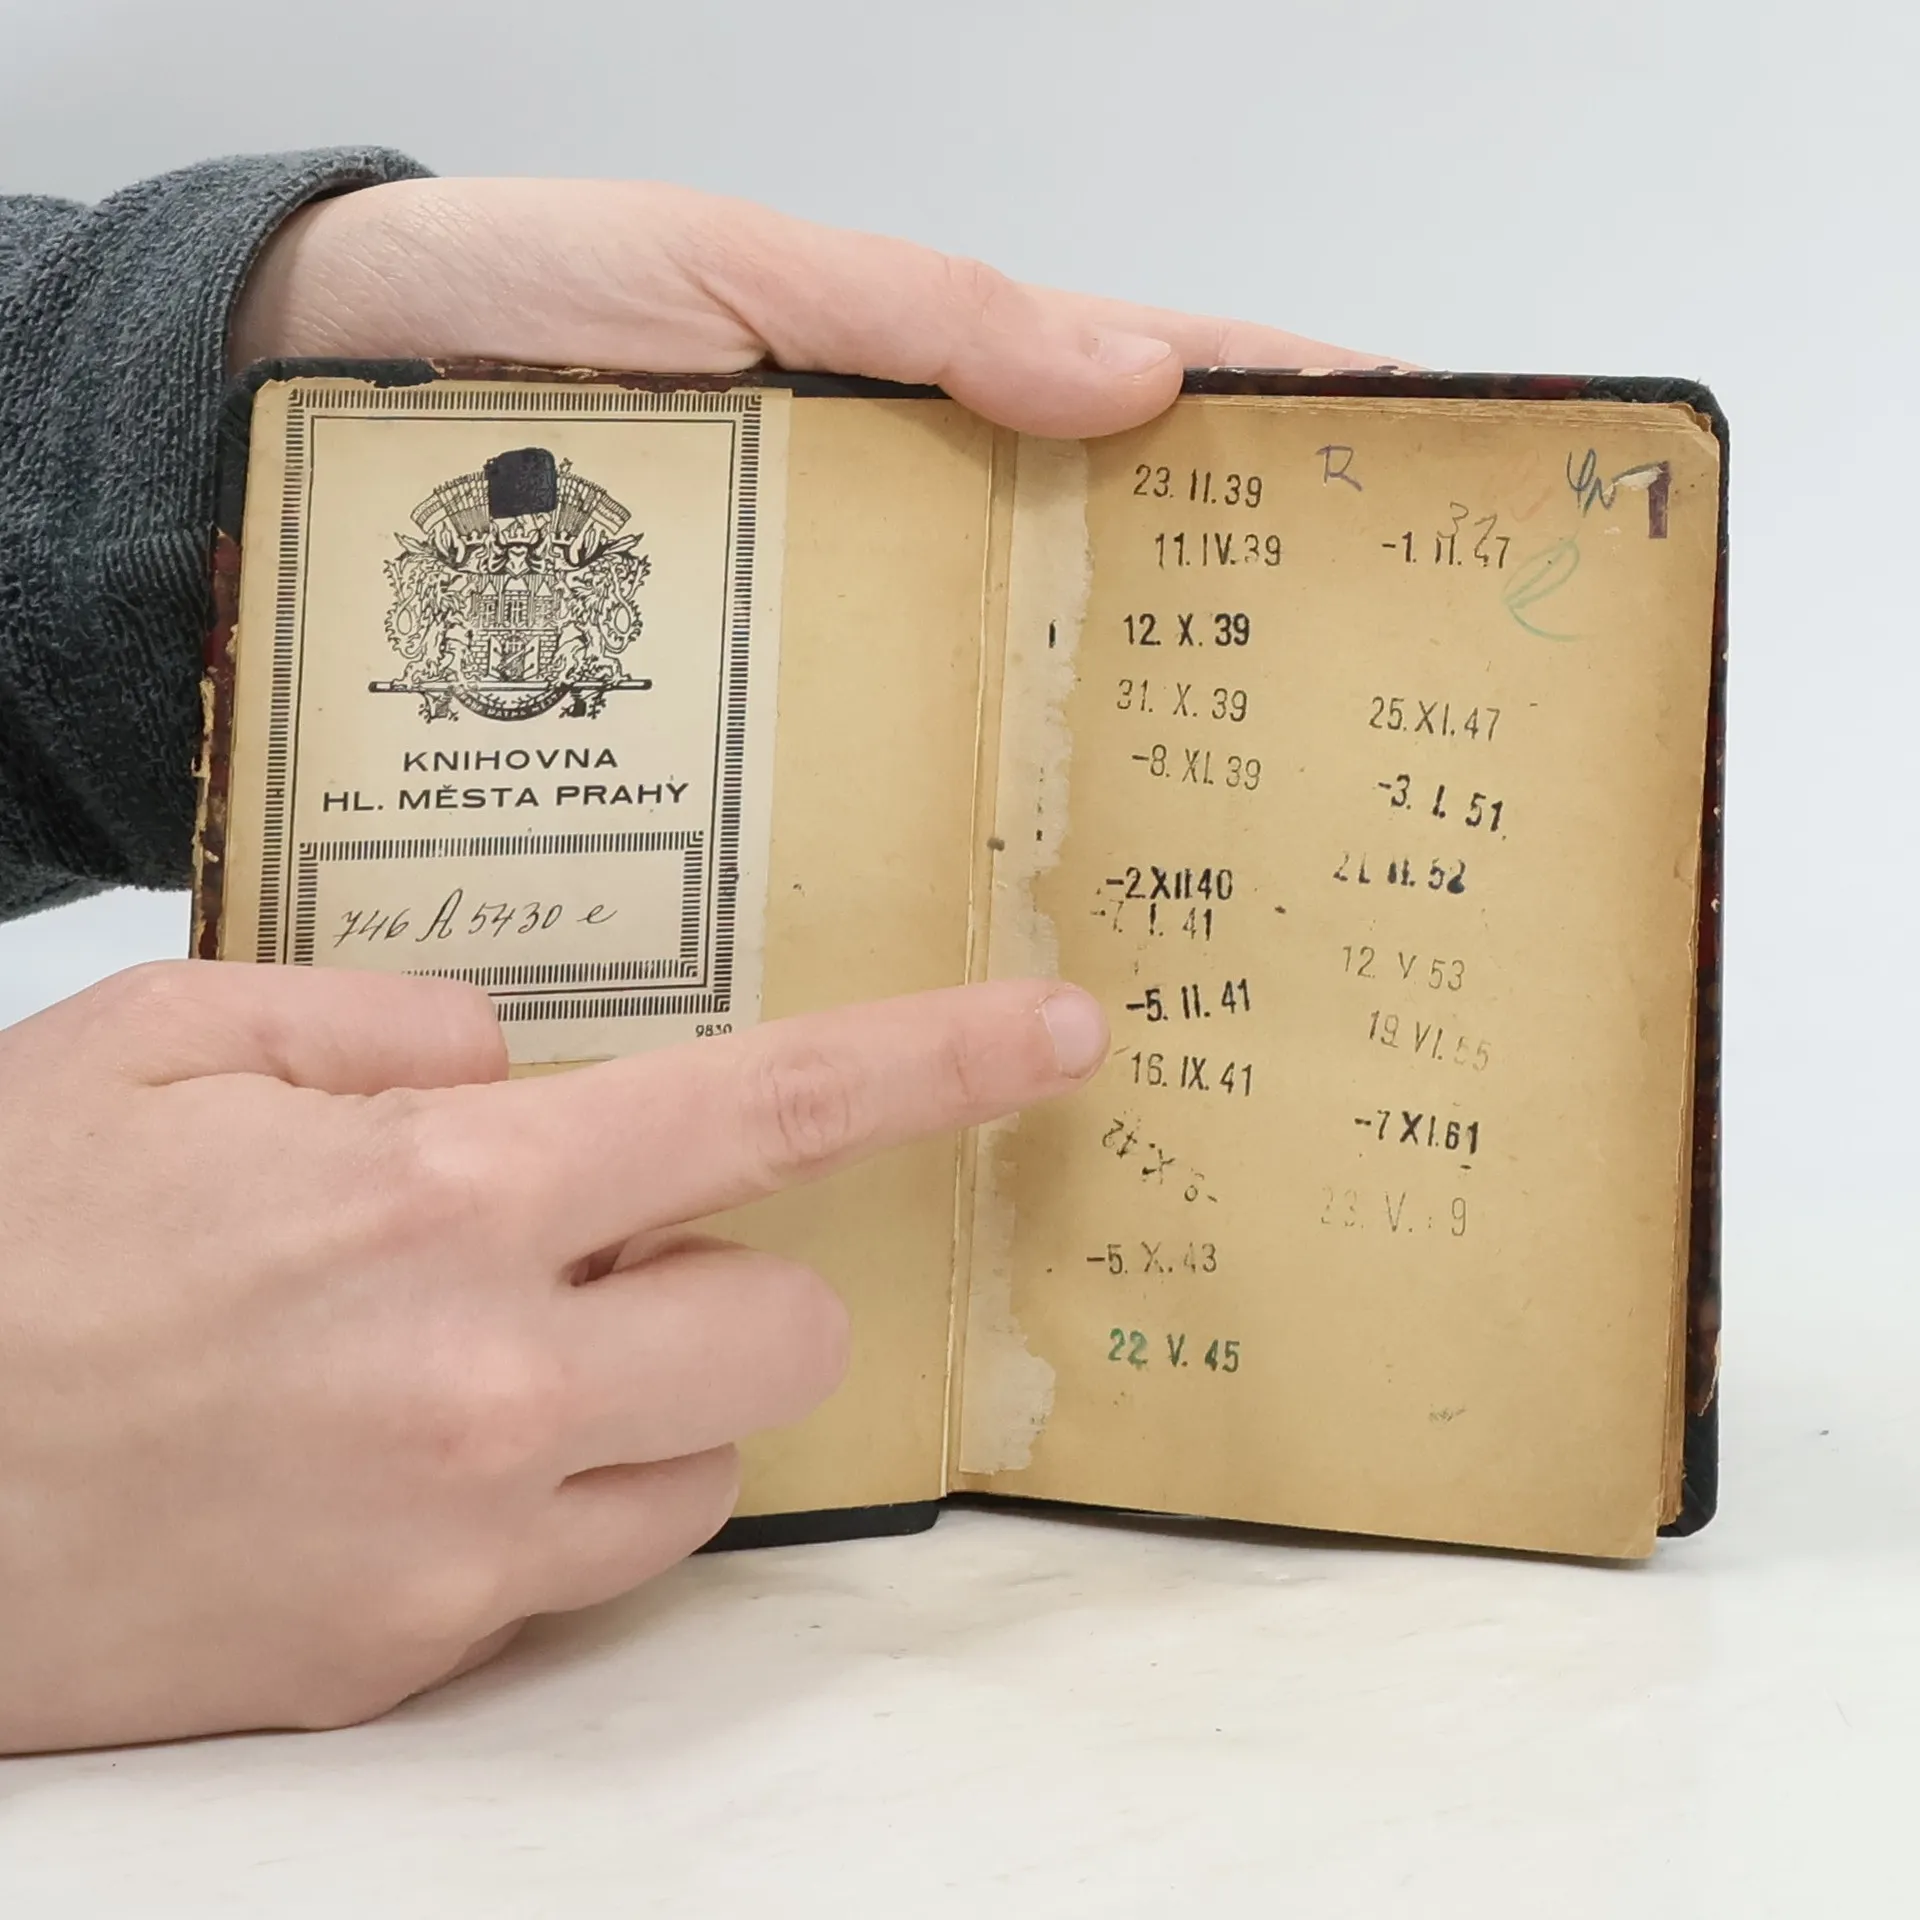 KNIHOVNA
HL. MĚSTA PRAHY
746 A 5430 e
9830
23. II. 39
11. IV. 39
12. X. 39
31. X. 39
-8. XI. 39
-2 XII 40
-7. I. 41
-5. II. 41
16. IX. 41
-5. X. 43
22 V. 45
R
-1. II. 47
25. XI. 47
-3. I. 51
21 II. 52
12 V 53
19 VI. 55
-7 XI. 61
1